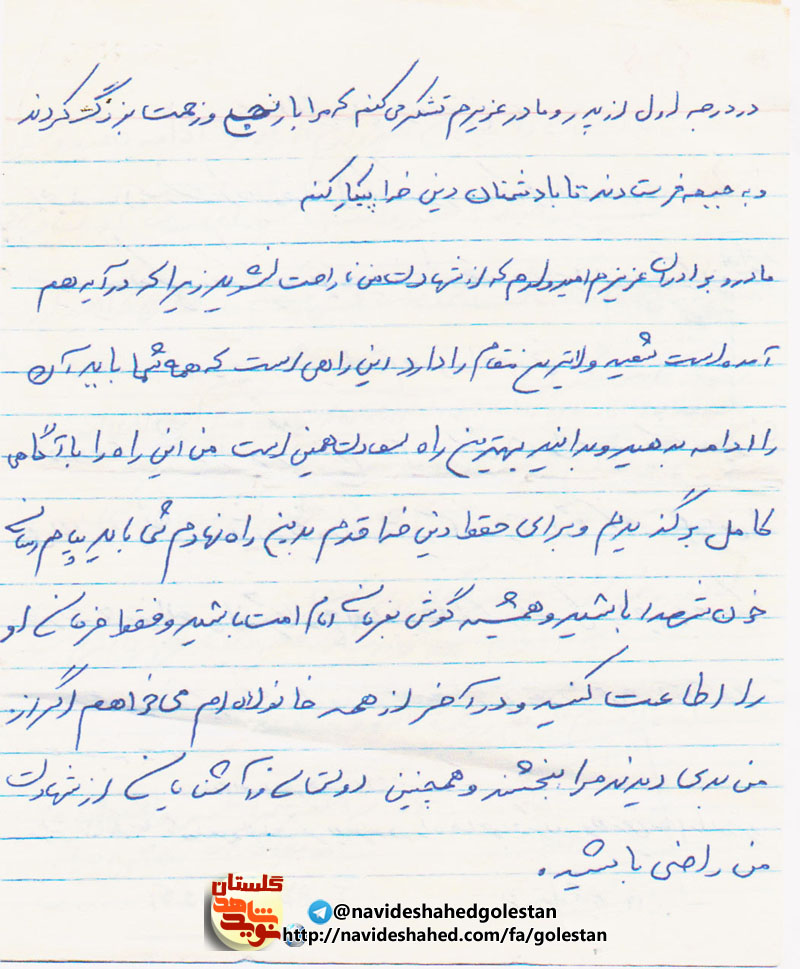 در درجه اول از پدر و مادر عزیزم تشکر می کنم که مرا با رنج و زحمت بزرگ کردند
و به جبهه فرستادند تا با دشمنان دین خدا پیکار کنم
مادر و برادران عزیزم امیدوارم که از شهادت من ناراحت نشوید زیرا که در آیه هم
آمده است شهید والاترین مقام را دارد این راهی است که همه شما باید آن
را ادامه بدهید و بدانید بهترین راه سعادت همین است من این راه را با آگاهی
کامل برگزیدم و برای حفظ دین خدا قدم بدین راه نهادم شما باید پیام رسان
خون شهدا باشید و همیشه گوش بفرمان امام امت باشید و فقط فرمان او
را اطاعت کنید و در آخر از همه خانواده ام می خواهم اگر از
من بدی دیدند مرا ببخشند و همچنین دوستان و آشنایان از شهادت
من راضی باشید.
گلستان
نوید شاهد
@navideshahedgolestan
http://navideshahed.com/fa/golestan